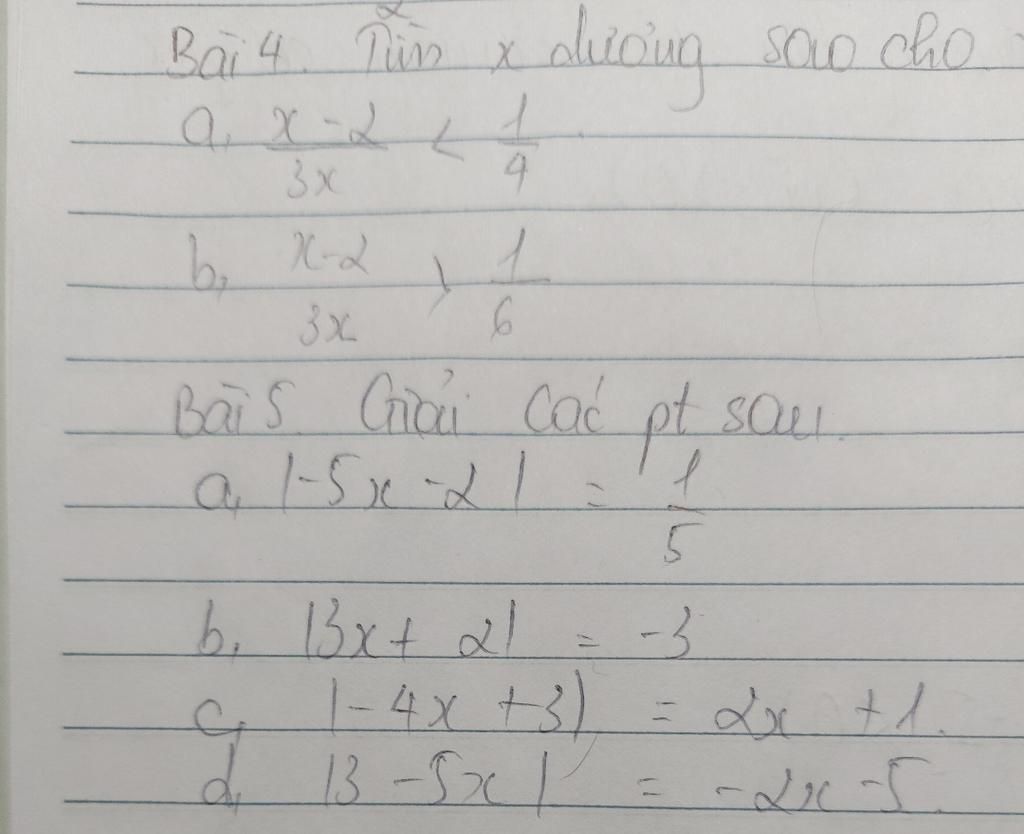 Bài 4. Tìm x dương sao cho
a, x - 2 / 3x < 1 / 4
b, x - 2 / 3x > 1 / 6
Bài 5 Giải các pt sau.
a, |-5x - 2| = 1 / 5
b, |3x + 2| = -3
c, |-4x + 3| = 2x + 1.
d, |3 - 5x| = -2x - 5.